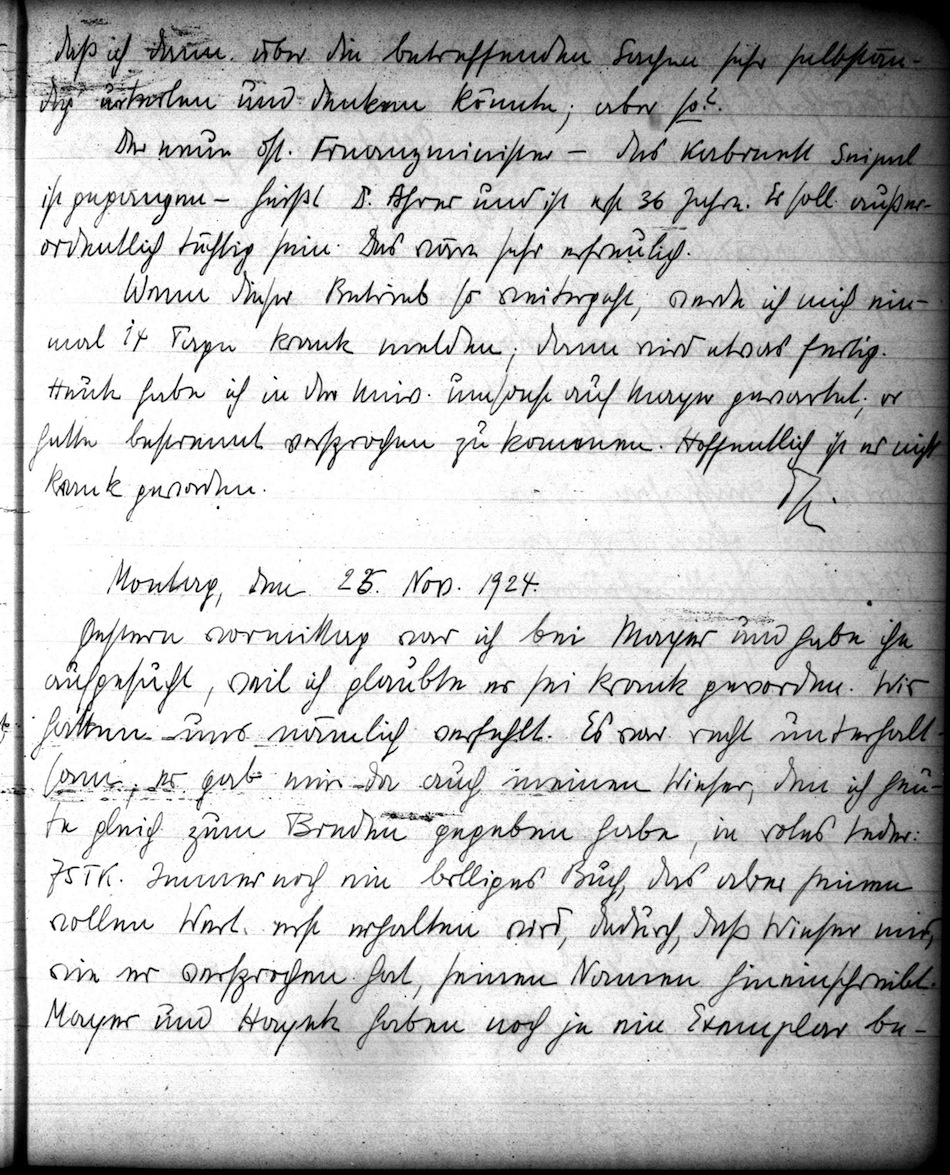 daß ich dann über die betreffenden Sachen sehr selbstän-
dig urteilen und denken könnte; aber so?
Der neue öst. Finanzminister – das Kabinett Seipel
ist gegangen – heißt D. Ahrer und ist erst 36 Jahre. Er soll außer-
ordentlich tüchtig sein. Das wäre sehr erfreulich.
Wenn dieser Betrieb so weitergeht, werde ich mich ein-
mal 14 Tage krank melden; dann wird etwas fertig.
Heute habe ich in der Univ. umsonst auf Mayer gewartet; er
hatte bestimmt versprochen zu kommen. Hoffentlich ist er nicht
krank geworden.
Montag, den 25. Nov. 1924.
Gestern vormittag war ich bei Mayer und habe ihn
aufgesucht, weil ich glaubte er sei krank geworden. Wir
hatten uns nämlich verfehlt. Es war recht unterhalt-
sam; er gab mir da auch meinen Wieser, den ich heu-
te gleich zum Binden gegeben habe, in rotes Leder:
75 TK. Immer noch ein billiges Buch, das aber seinen
vollen Wert erst erhalten wird, dadurch, daß Wieser mir,
wie er versprochen hat, seinen Namen hineinschreibt.
Mayer und Hayek haben noch je ein Exemplar be-